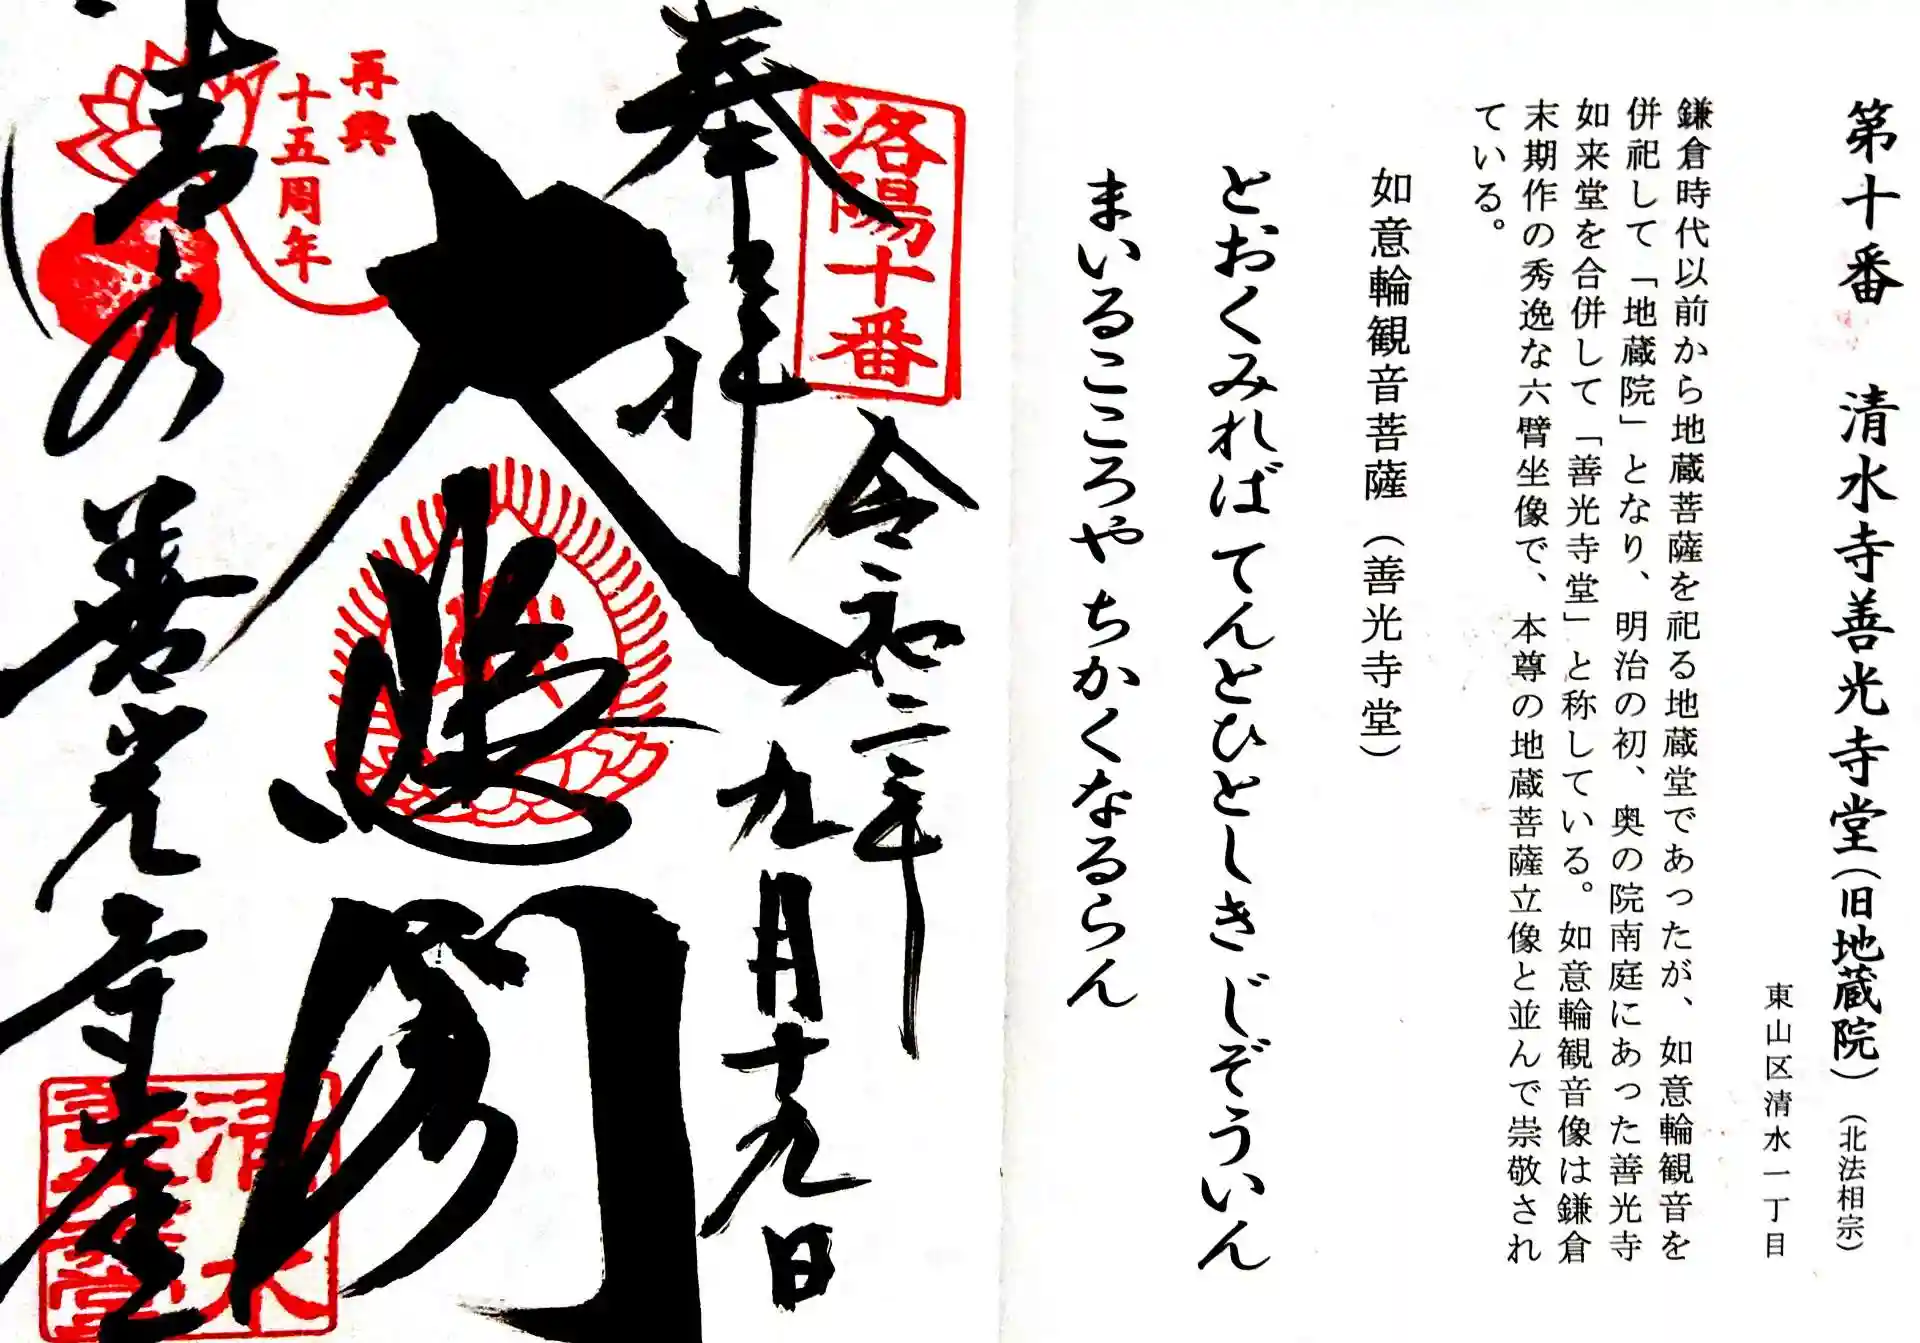 第十番　清水寺善光寺堂(旧地蔵院)（北法相宗）
東山区清水一丁目
鎌倉時代以前から地蔵菩薩を祀る地蔵堂であったが、如意輪観音を
併祀して「地蔵院」となり、明治の初、奥の院南庭にあった善光寺
如来堂を合併して「善光寺堂」と称している。如意輪観音像は鎌倉
末期作の秀逸な六臂坐像で、本尊の地蔵菩薩立像と並んで崇敬され
ている。
如意輪観音菩薩（善光寺堂）
とおくみれば てんとひとしき じぞういん
まいるこころや ちかくなるらん
洛陽十番
奉拝
令和二年
九月十九日
大悲閣
再興
十五周年
清水
善光寺堂
清水
善光寺堂